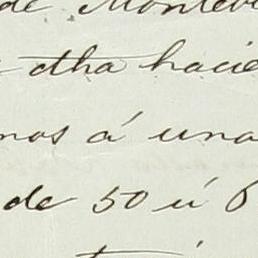 de Montev
otha hacie
mos á una
de 50 ú 6